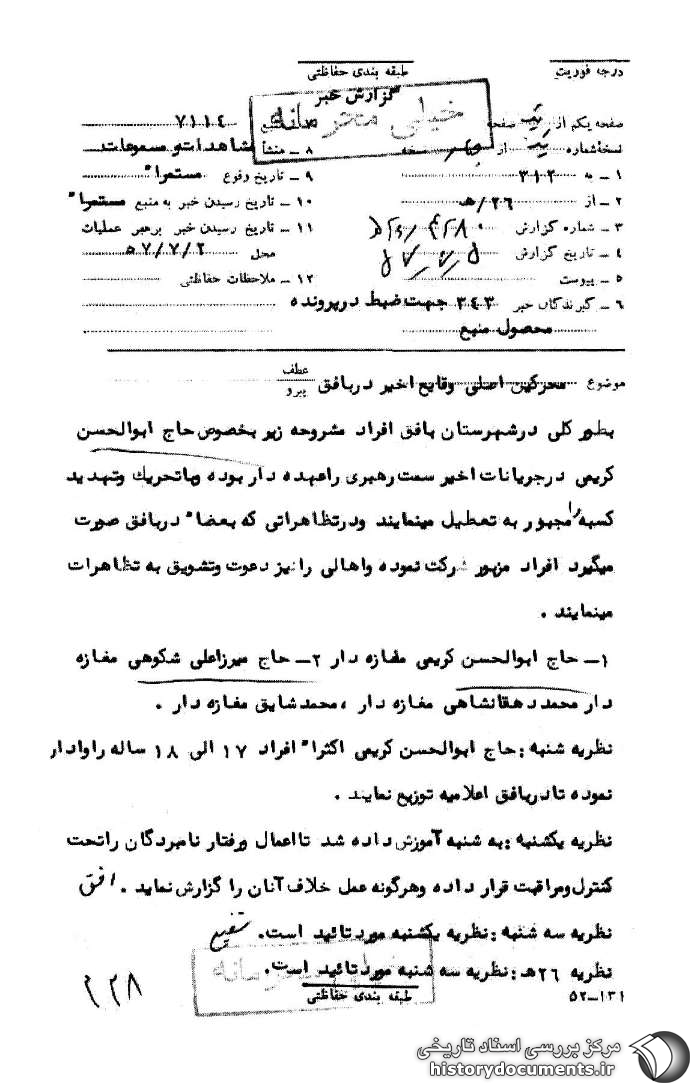 درجه فوریت
طبقه بندی حفاظتی
گزارش خبر
خیلی محرمانه
صفحه یکم از یک صفحه
نسخه شماره یک از چهار نسخه
۱ ـ به ۳۱۲
۲ ـ از ۲۶/هـ
۳ ـ شماره گزارش
۴ ـ تاریخ گزارش
۵ ـ پیوست
۶ ـ گیرندگان خبر ۳۴۳ جهت ضبط در پرونده
محصول منبع
منبع ۷۱۱۴
۸ ـ منشأ مشاهدات و مسموعات
۹ ـ تاریخ وقوع مستمرا"
۱۰ ـ تاریخ رسیدن خبر به منبع مستمرا"
۱۱ ـ تاریخ رسیدن خبر برهبر عملیات
محل ۵۷/۷/۲
۱۲ ـ ملاحظات حفاظتی
موضوع محرکین اصلی وقایع اخیر دربافق عطف
پیرو
بطور کلی درشهرستان بافق افراد مشروحه زیر بخصوص حاج ابوالحسن
کریمی درجریانات اخیر سمت رهبری راعهده دار بوده وباتحریك وتهدید
کسبه را مجبور به تعطیل مینمایند ودرتظاهراتی که بعضا" دربافق صورت
میگیرد افراد مزبور شرکت نموده واهالی رانیز دعوت وتشویق به تظاهرات
مینمایند .
۱ـ حاج ابوالحسن کریمی مغازه دار ۲ـ حاج میرزاعلی شکوهی مغازه
دار محمد دهقانشاهی مغازه دار ، محمد شایق مغازه دار .
نظریه شنبه : حاج ابوالحسن کریمی اکثرا" افراد ۱۷ الی ۱۸ ساله راوادار
نموده تادربافق اعلامیه توزیع نمایند .
نظریه یکشنبه : به شنبه آموزش داده شد تااعمال ورفتار نامبردگان راتحت
کنترل ومراقبت قرار داده وهرگونه عمل خلاف آنان را گزارش نماید . افق
نظریه سه شنبه : نظریه یکشنبه مورد تائید است. شفیع
نظریه ۲۶هـ : نظریه سه شنبه مورد تائید است.
خیلی محرمانه
طبقه بندی حفاظتی
۵۲ـ۱۳۱
۲۲۸
مرکز بررسی اسناد تاریخی
historydocuments.ir